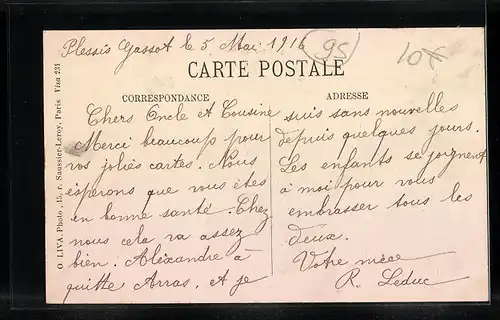 Plessis Gassot le 5 Mai 1916
95
10€
CARTE POSTALE
CORRESPONDANCE
Chers Oncle et Cousine
Merci beaucoup pour
vos jolies cartes. Nous
espérons que vous êtes
en bonne santé. Chez
nous cela va assez
bien. Aléxandre a
quitté Arras, et je
ADRESSE
suis sans nouvelles
depuis quelques jours.
Les enfants se joignent
à moi pour vous
embrasser tous les
deux.
Votre nièce
R. Leduc
O LIVA. Photo, 15, r. Saussier-Leroy, Paris Visa 231